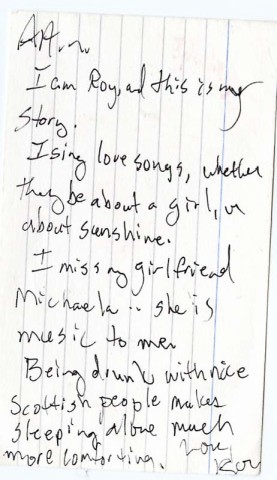 I am Roy, and this is my
story.
I sing love songs, whether
they be about a girl, or
about sunshine.
I miss my girlfriend
Michaela .. she is
music to me.
Being drunk with nice
Scottish people makes
sleeping alone much
more comforting. Love,
Roy